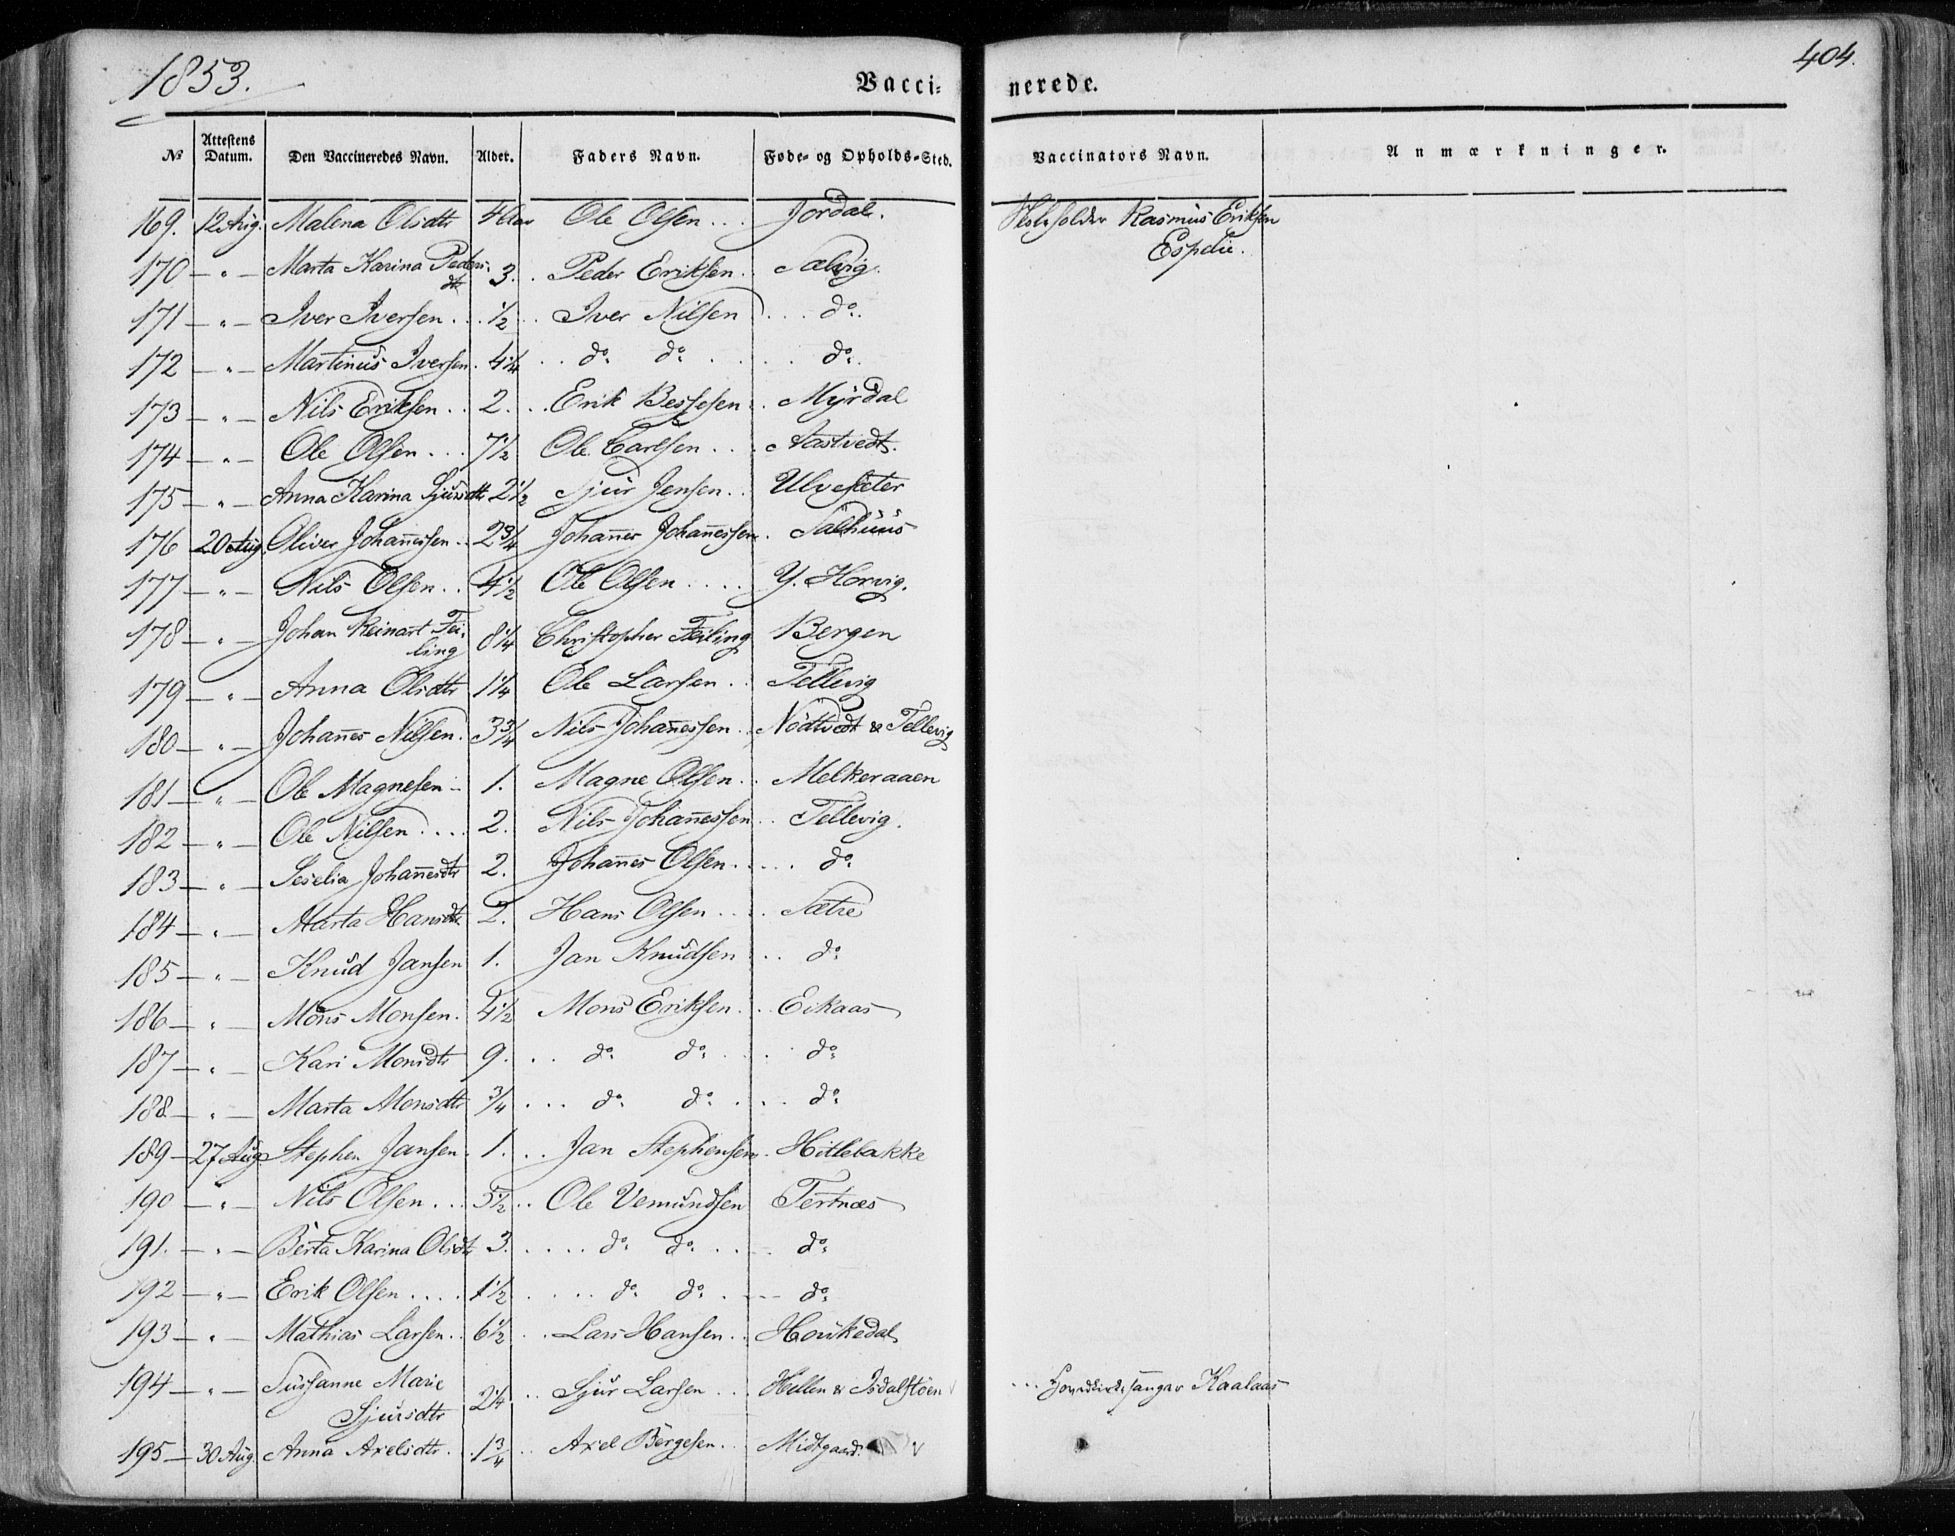 1853.
404.
Vacci-
nerede.
№ Attestens Datum. Den Vaccineredes Navn. Alder. Faders Navn. Føde- og Opholds-Sted. Vaccinators Navn. Anmærkninger.
169. 12 Aug. Malena Olsdtr 4 Aar Ole Olsen . . . Jordal. Skoleholder Rasmus Eriksen
Espelie.
170 — " — Marta Karina Peders-
dtr 3. . Peder Eriksen . Sælvig.
171 — " — Iver Iversen . . . ½ . . Iver Nilsen . . . do.
172 — " — Martinus Iversen . 4¼ . . do. do. . . . do.
173 — " — Nils Eriksen . . 2. . . Erik Bessesen . . Myrdal
174 — " — Ole Olsen . . . 7½ Ole Carlsen . . . Aastvedt.
175 — " — Anna Karina Sjursdtr 2½ Sjur Jensen . . Ulvesæter
176 20 Aug. Oliver Johannessen . . 2¾ Johannes Johannessen . Salhuus
177 — " — Nils Olsen . . 4½ Ole Olsen . . . . Y. Horvig.
178 — " — Johan Reinart Fei-
ling 8¼ Christopher Feiling Bergen
179 — " — Anna Olsdtr 1¼ Ole Larsen . . Tellevig
180 — " — Johannes Nilsen . 3¾ Nils Johannessen . . Nødtvedt & Tellevig
181 — " — Ole Magnesen — 1. Magne Olsen . . Melkeraaen
182 — " — Ole Nilsen . . . . 2. Nils Johannessen . . Tellevig.
183 — " — Seselia Johannesdtr 2. Johannes Olsen . . . . do.
184 — " — Marta Hansdtr 2. Hans Olsen . . . Sætre
185 — " — Knud Jansen 1. Jan Knudsen . . . do.
186 — " — Mons Monsen . 4½ Mons Eriksen . . . Eikaas
187 — " — Kari Monsdtr 9. . . do. do. . . . do.
188 — " — Marta Monsdtr ¾ . . . do. do. . . . do.
189 — 27 Aug Stephen Jansen . 1. . . Jan Stephensen . Hitlebakke
190 — " — Nils Olsen . . . 5½ . . Ole Vemundsen Tertnæs
191. — " — Berta Karina Olsdtr 3. . . . . do. do. . . . do.
192 — " — Erik Olsen . . . . 1½ . . . . do. do. . — do.
193 — " — Mathias Larsen . . 6½ . . Lars Hansen . . Houkedal
194 — " — Susanne Marie
Sjursdtr 2¼ . . Sjur Larsen . . . Hellen & Isdalstøen . . . Kaalaas
195 — 30 Aug. Anna Axelsdtr . . 1¾ . . Axel Børgesen . . Midtgaard.